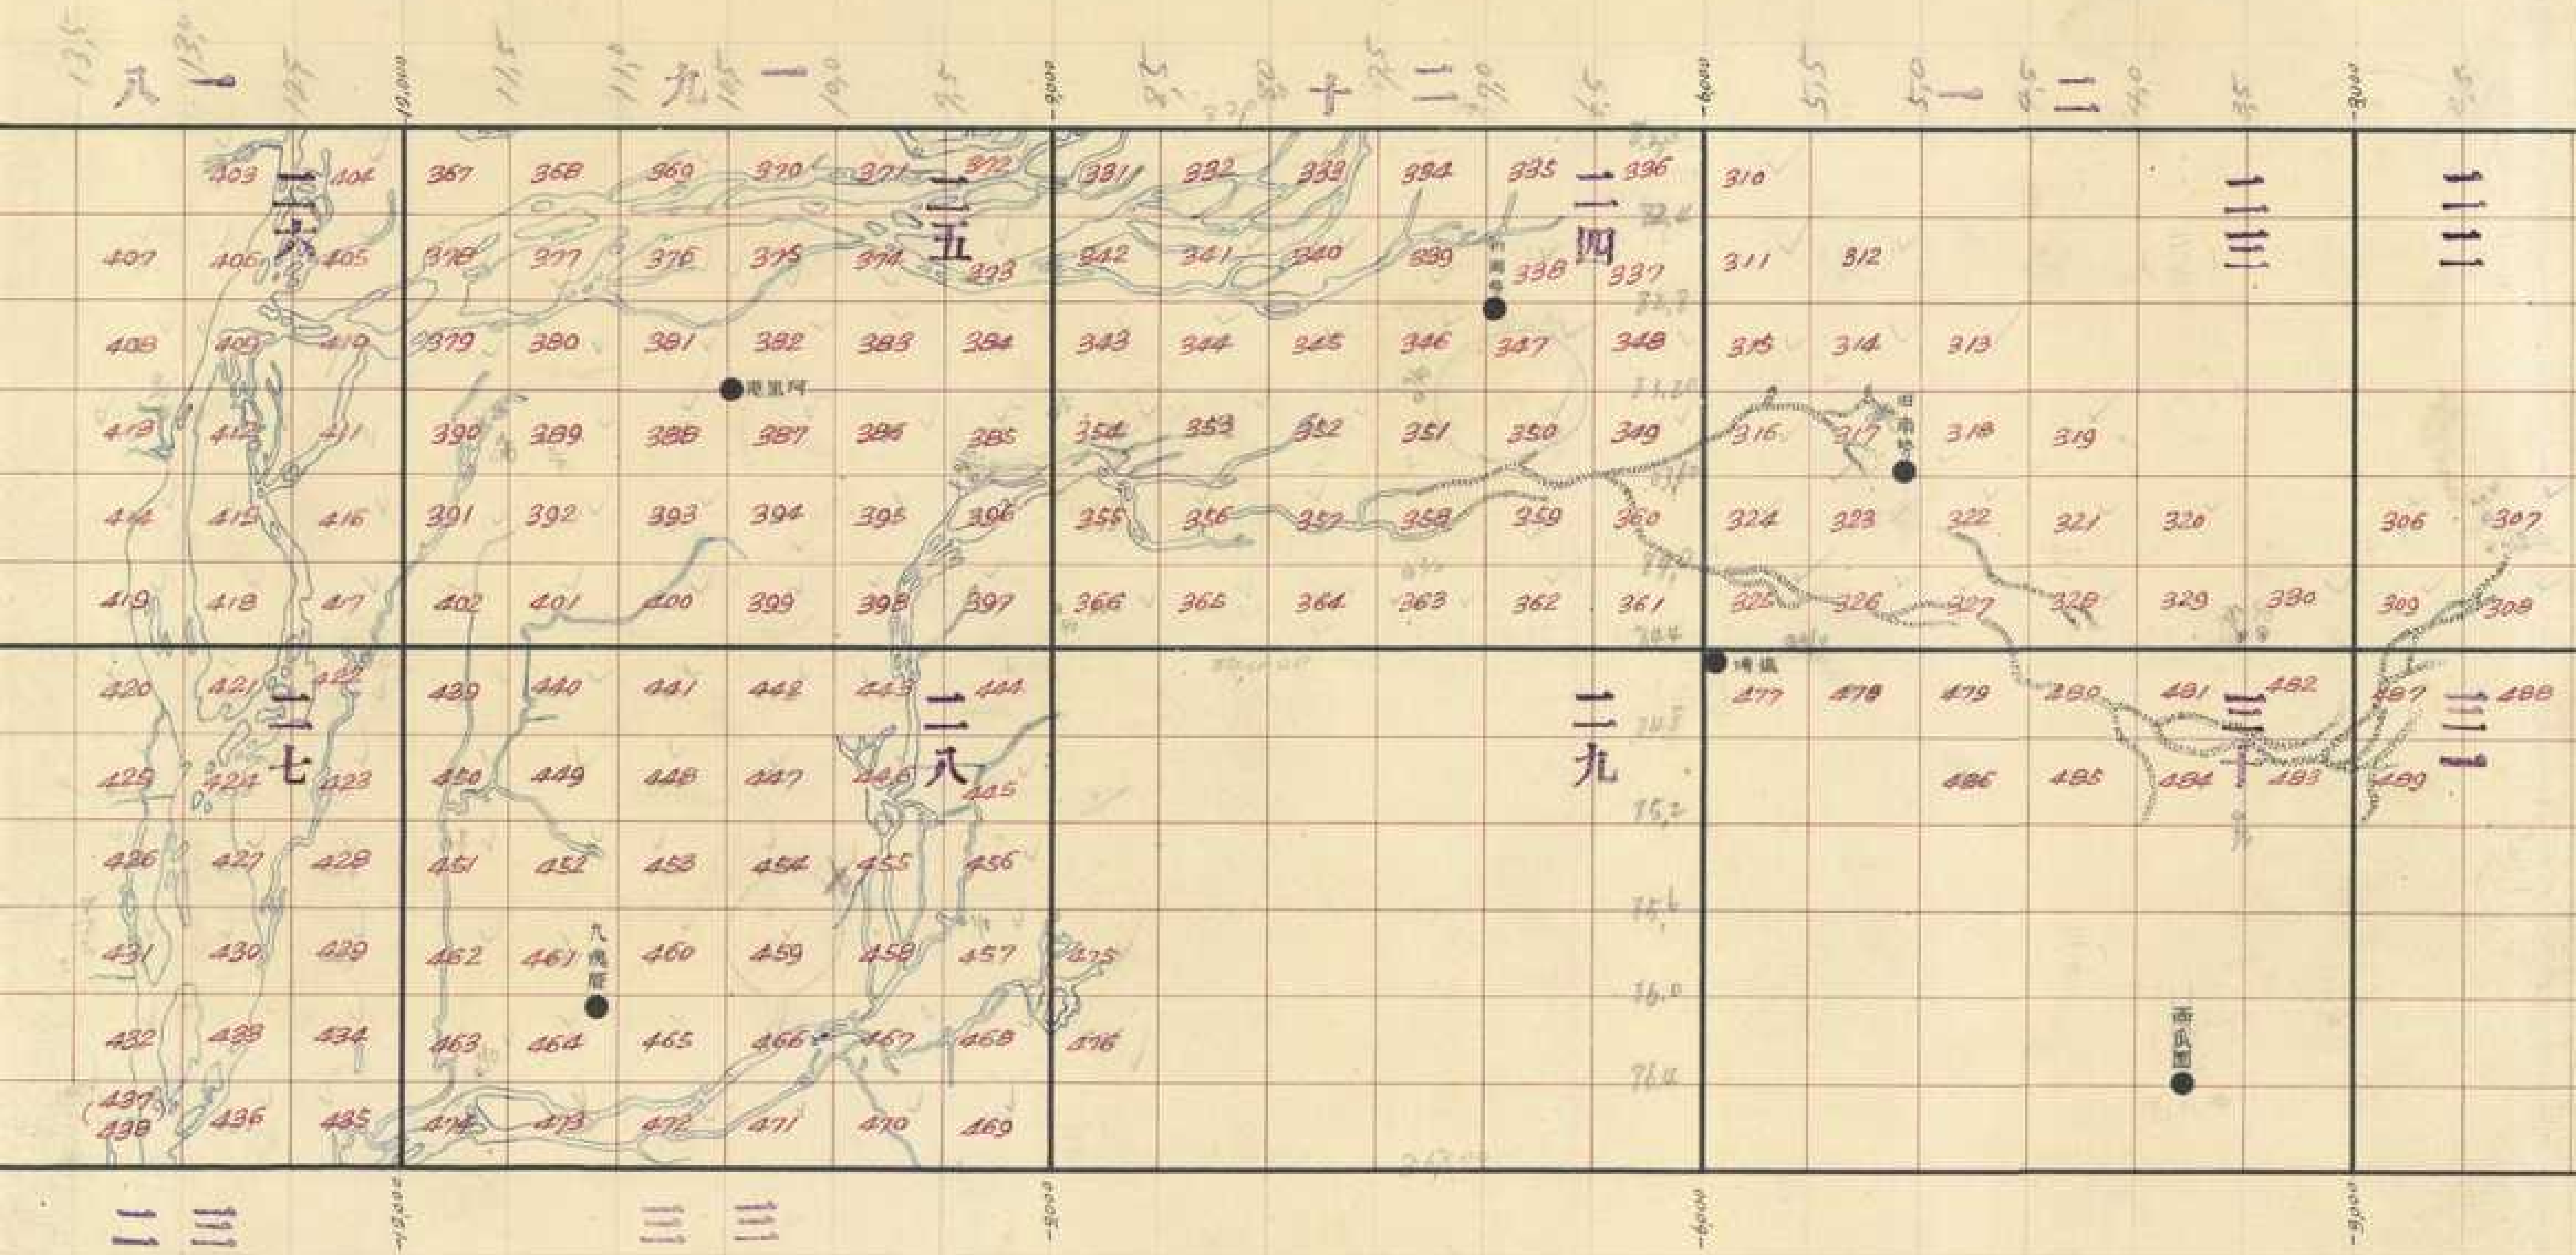 一八
一九
二十
二一
-12,000
-9,000
-6,000
-3,000
13,5 12,5 11,5 11,0 10,5 10,0 9,5 8,5 8,0 7,5 7,0 6,5 5,5 5,0 4,5 4,0 3,5 2,5
二六
二五
二四
二三
二二
403 404 367 368 369 370 371 372 331 332 333 334 335 336 310
407 406 405 378 377 376 375 374 373 342 341 340 339 338 337 311 312
408 409 410 379 380 381 382 383 384 343 344 345 346 347 348 315 314 313
港里阿
413 412 411 390 389 388 387 386 385 354 353 352 351 350 349 316 317 318 319
414 415 416 391 392 393 394 395 396 355 356 357 358 359 360 324 323 322 321 320 306 307
419 418 417 402 401 400 399 398 397 366 365 364 363 362 361 325 326 327 328 329 330 309 308
二七
二八
二九
三十
三一
420 421 422 439 440 441 442 443 444 477 478 479 480 481 482 487 488
425 424 423 450 449 448 447 446 445 486 485 484 483 489
426 427 428 451 452 453 454 455 456
431 430 429 462 461 460 459 458 457 475
九塊厝
432 433 434 463 464 465 466 467 468 476
西瓜園
(437)
438 436 435 474 473 472 471 470 469
-12,000
-9,000
-6,000
-3,000
三二
三三